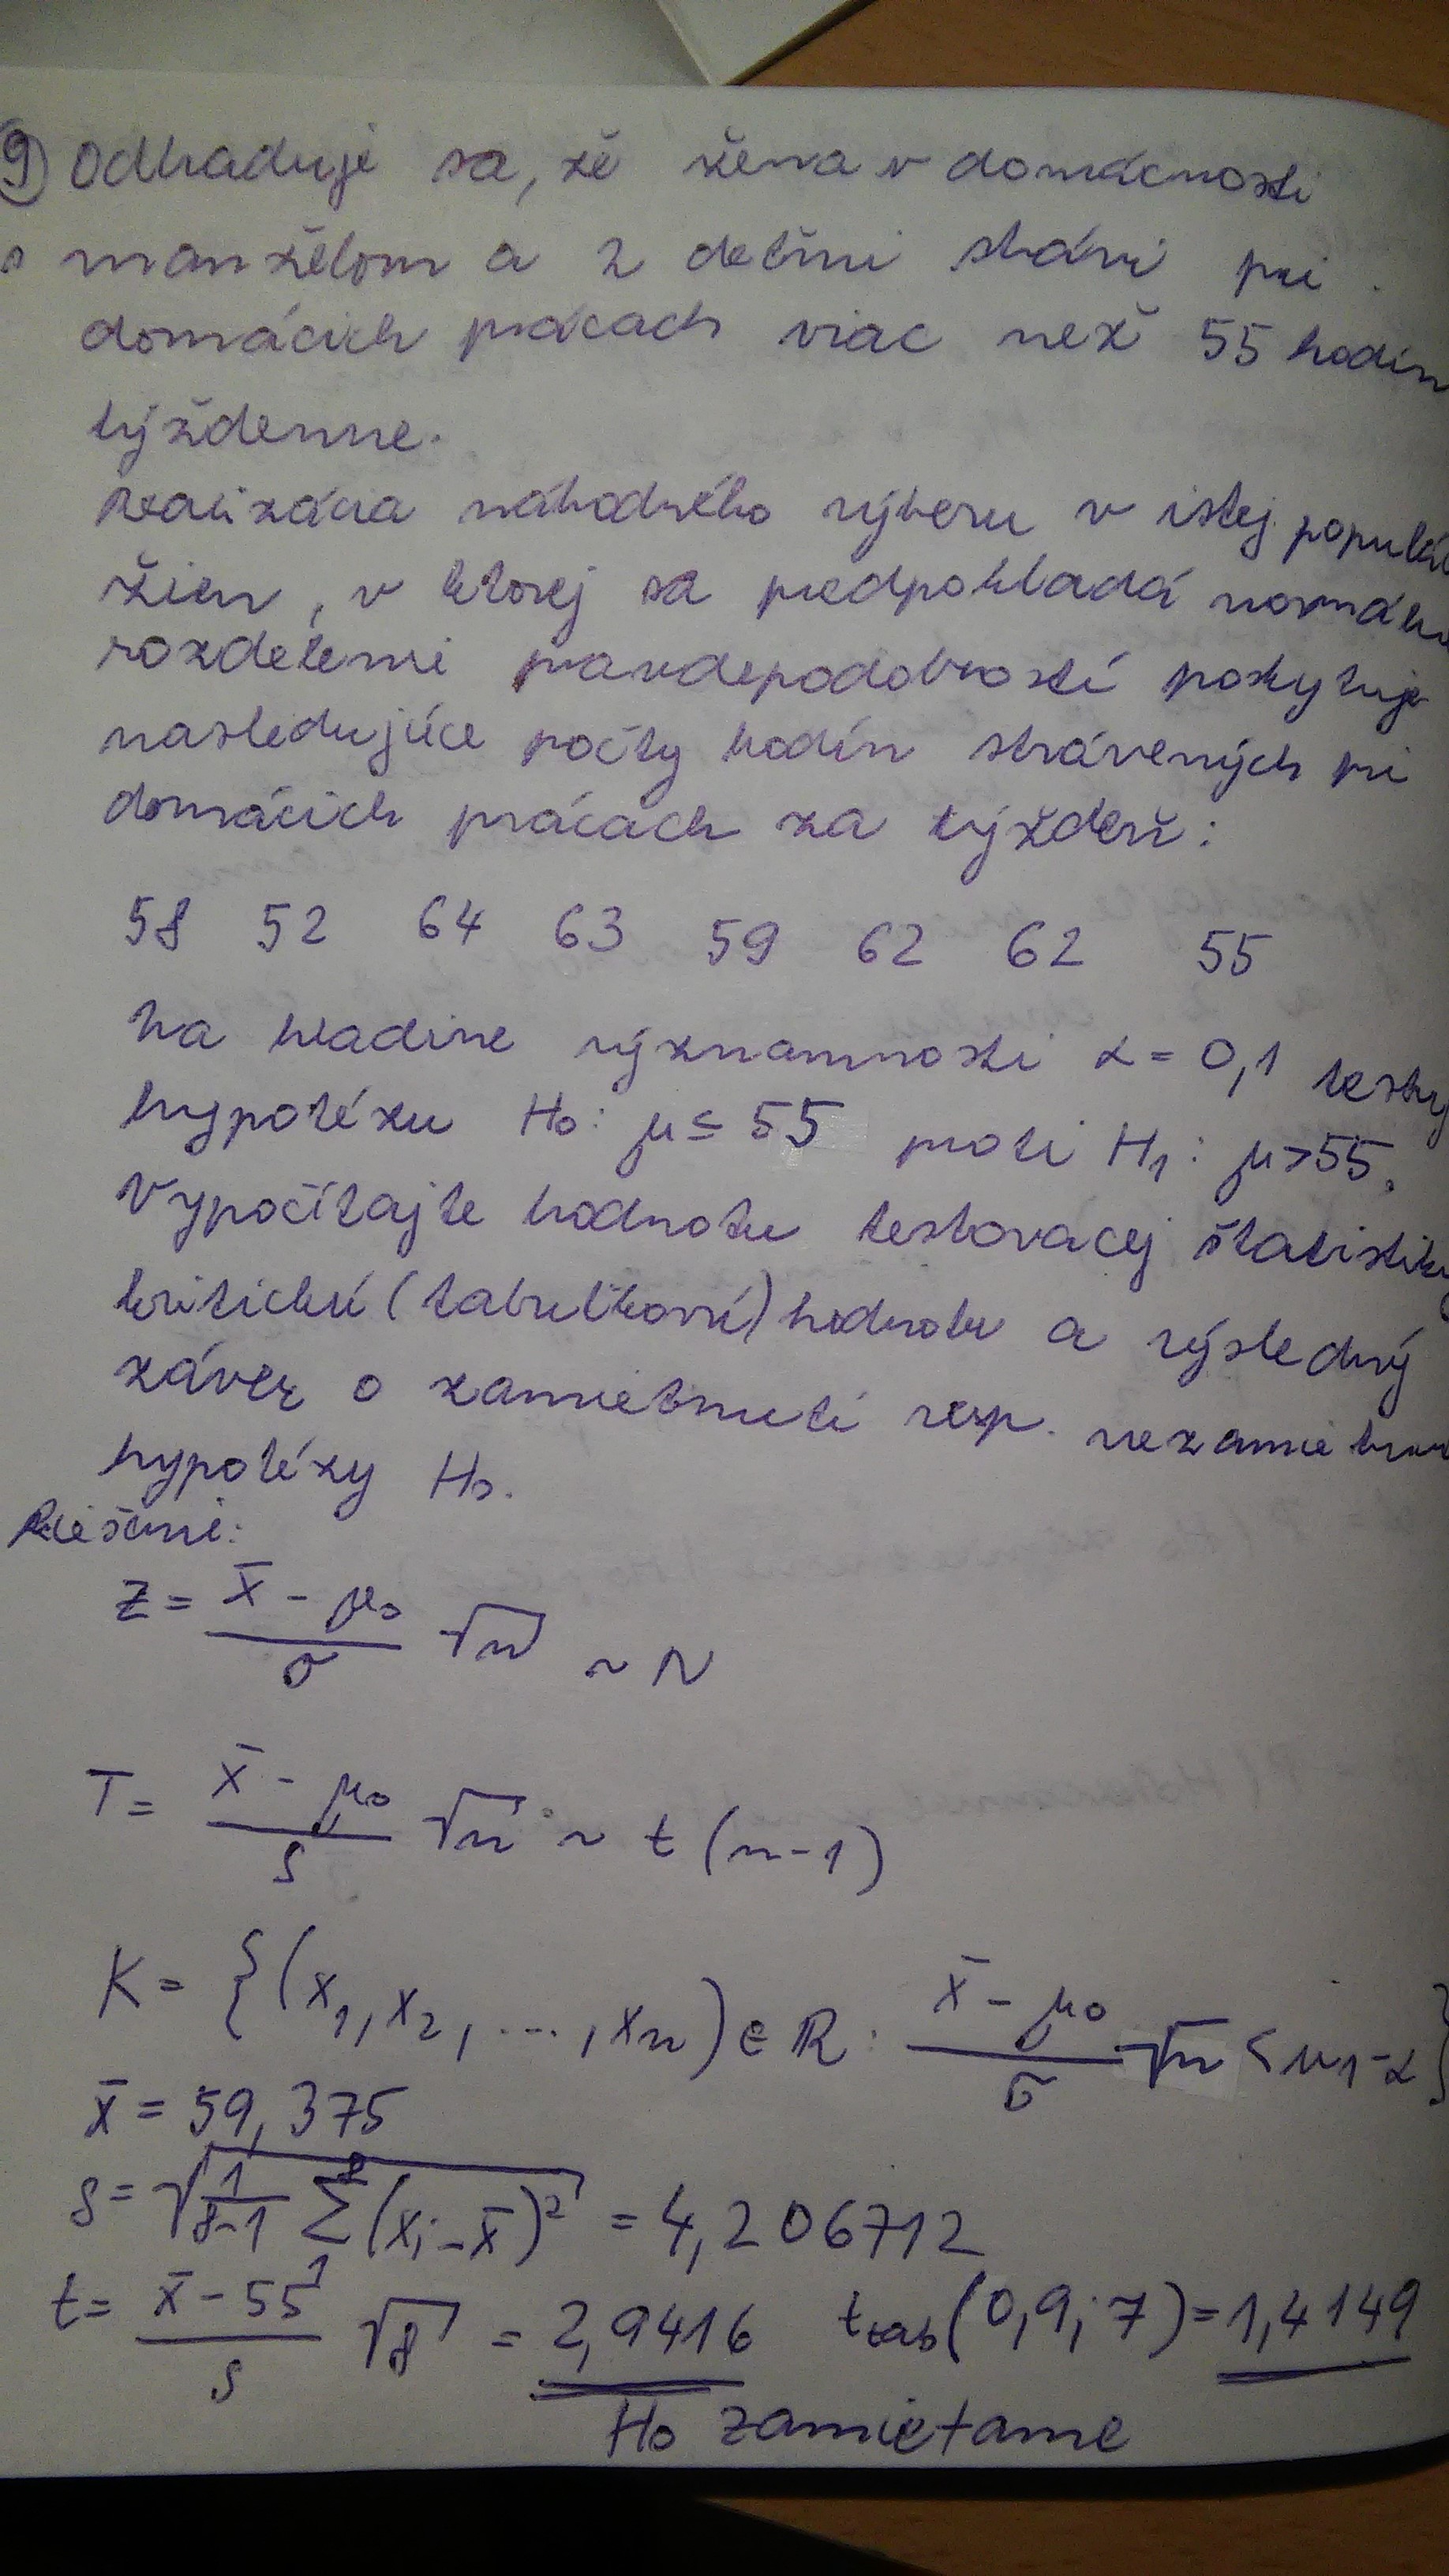 9) Odhaduje sa, že žena v domácnosti
s manželom a 2 deťmi strávi pri
domácich prácach viac než 55 hodín
týždenne.
Realizácia náhodného výberu v istej populá
žien, v ktorej sa predpokladá normálne
rozdelenie pravdepodobností poskytuje
nasledujúce počty hodín strávených pri
domácich prácach za týždeň:
58 52 64 63 59 62 62 55
Na hladine významnosti α = 0,1 testu
hypotézu H₀: μ ≤ 55 proti H₁: μ > 55.
Vypočítajte hodnotu testovacej štatistiky
kritickú (tabuľkovú) hodnotu a výsledný
záver o zamietnutí resp. nezamietnu
hypotézy H₀.
Riešenie:
Z = (x̄ - μ₀)/σ √n ~ N
T = (x̄ - μ₀)/s √n ~ t (n-1)
K = {(x₁, x₂, ..., xn) ∈ R : (x̄ - μ₀)/σ √n < u₁₋α}
x̄ = 59,375
s = √(1/(8-1) Σ₁⁸ (xᵢ - x̄)²) = 4,206712
t = (x̄ - 55)/s √8 = 2,9416 t tab (0,9; 7) = 1,4149
H₀ zamietame